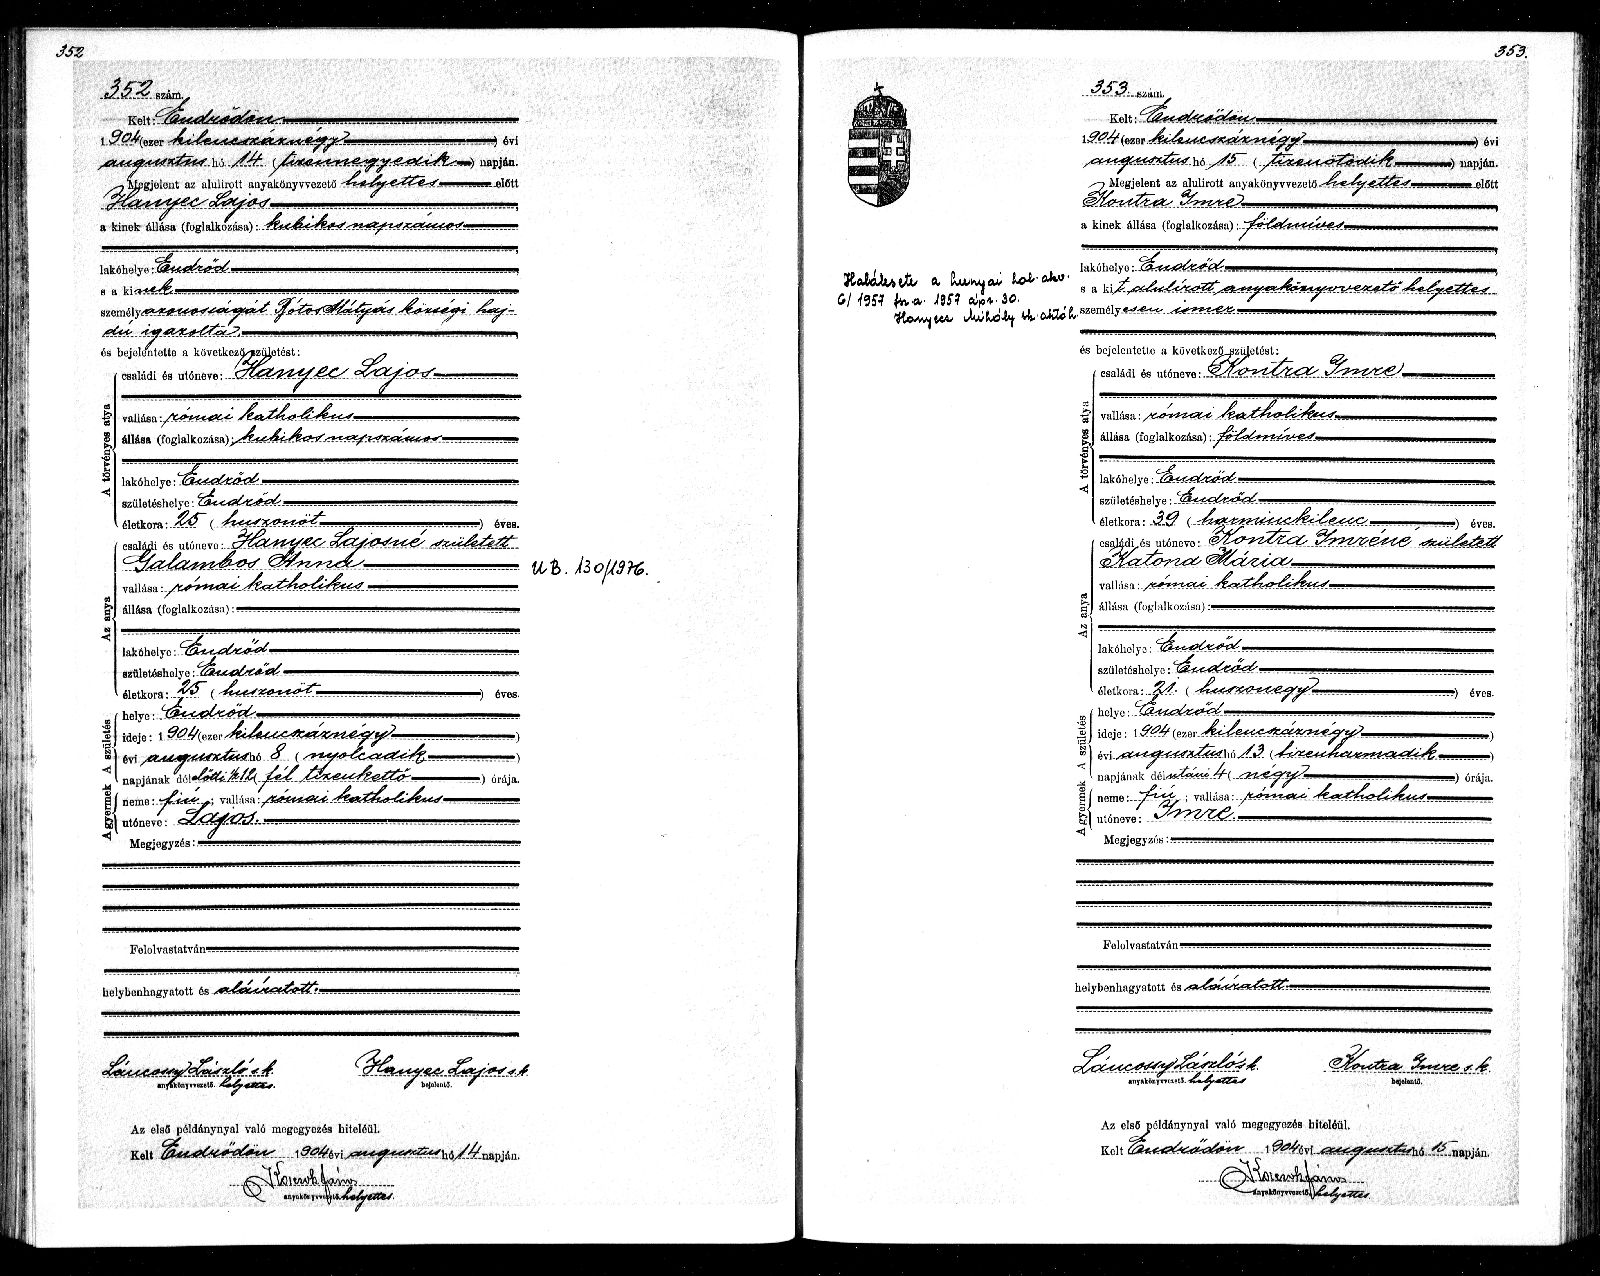 352
352 szám.
Kelt: Endrődön
1904 (ezer kilenczáznégy) évi
augusztus hó 14 (tizennegyedik) napján.
Megjelent az alulirott anyakönyvvezető helyettes előtt
Hanyec Lajos
a kinek állása (foglalkozása): kubikos napszámos
lakóhelye: Endrőd
s a kinek
személyazonosságát Tótos Mátyás községi haj-
dú igazolta,
és bejelentette a következő születést:
A törvényes atya
családi és utóneve: Hanyec Lajos
vallása: római katholikus
állása (foglalkozása): kubikos napszámos
lakóhelye: Endrőd
születéshelye: Endrőd
életkora: 25 (huszonöt) éves.
Az anya
családi és utóneve: Hanyec Lajosné született
Galambos Anna
vallása: római katholikus
állása (foglalkozása):
lakóhelye: Endrőd
születéshelye: Endrőd
életkora: 25 (huszonöt) éves.
A születés
helye: Endrőd
ideje: 1904 (ezer kilenczáznégy)
évi augusztus hó 8 (nyolcadik)
napjának délelőtti ½12 (fél tizenkettő) órája.
A gyermek
neme: fiú; vallása: római katholikus
utóneve: Lajos.
Megjegyzés:
Felolvastatván
helybenhagyatott és aláíratott.
Láncossy László s.k. Hanyec Lajos s.k.
anyakönyvvezető. helyettes. bejelentő.
Az első példánynyal való megegyezés hiteléül.
Kelt Endrődön 1904 évi augusztus hó 14 napján.
János
anyakönyvvezető. helyettes.
UB. 130/1976.
353.
Halálesete a hunyai hal. akv.
6/1957 fsz. a. 1957 ápr. 30.
Hanyecz Mihály sk aktóh
353 szám.
Kelt: Endrődön
1904 (ezer kilenczáznégy) évi
augusztus hó 15 (tizenötödik) napján.
Megjelent az alulirott anyakönyvvezető helyettes előtt
Kontra Imre
a kinek állása (foglalkozása): földmíves
lakóhelye: Endrőd
s a kit alulírott anyakönyvvezető helyettes
személyesen ismer
és bejelentette a következő születést:
A törvényes atya
családi és utóneve: Kontra Imre
vallása: római katholikus
állása (foglalkozása): földmíves
lakóhelye: Endrőd
születéshelye: Endrőd
életkora: 39 (harminckilenc) éves.
Az anya
családi és utóneve: Kontra Imréné született
Katona Mária
vallása: római katholikus
állása (foglalkozása):
lakóhelye: Endrőd
születéshelye: Endrőd
életkora: 21. (huszonegy) éves.
A születés
helye: Endrőd
ideje: 1904 (ezer kilenczáznégy)
évi augusztus hó 13 (tizenharmadik)
napjának délutáni 4 (négy) órája.
A gyermek
neme: fiú; vallása: római katholikus
utóneve: Imre.
Megjegyzés:
Felolvastatván
helybenhagyatott és aláíratott
Láncossy László s.k. Kontra Imre s.k.
anyakönyvvezető. helyettes bejelentő.
Az első példánynyal való megegyezés hiteléül.
Kelt Endrődön 1904 évi augusztus hó 15 napján.
János
anyakönyvvezető. helyettes